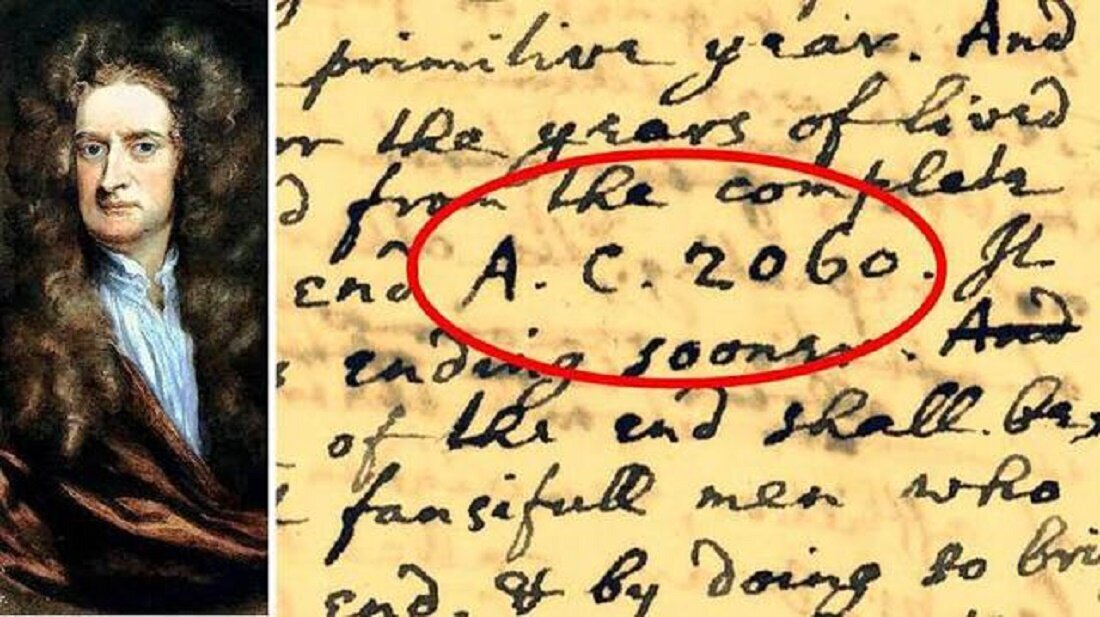 primitive year. And
the years of lived
from the complete
end A. C. 2060. It
ending sooner. And
of the end shall be
fancifull men who
end, & by doing so bri